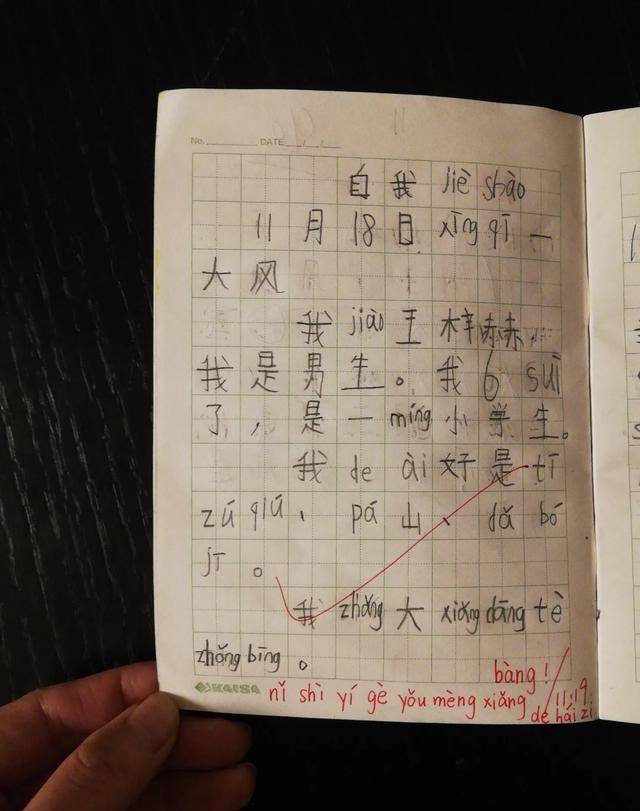 No. DATE
自我 jiè shào
11月18日 xīng qī 一
大风
我 jiào 王梓赫,
我是男生。我6 suì
了，是一 míng 小学生。
我 de ài 好是 tī
zú qiú、pá 山、dǎ bó
jī。
我 zhǎng 大 xiǎng dāng tè
zhǎng bīng。
bàng!
KAISA nǐ shì yí gè yǒu mèng xiǎng de hái zi
11.19.